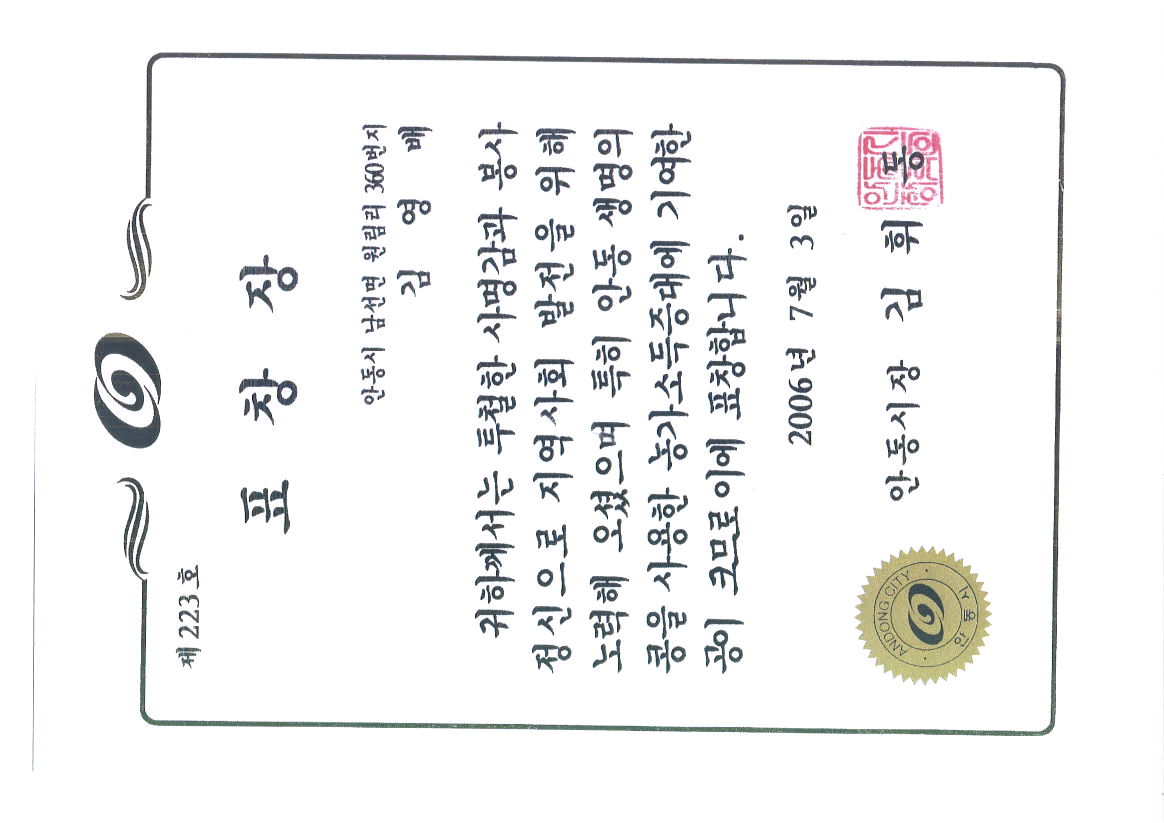 제 223 호
표 창 장
안동시 남선면 원림리 360번지
김 영 배
귀하께서는 투철한 사명감과 봉사
정신으로 지역사회 발전을 위해
노력해 오셨으며 특히 안동 생명의
콩을 사용한 농가소득증대에 기여한
공이 크므로 이에 표창합니다.
2006년 7월 3일
안동시장 김 휘 동
ANDONG CITY
안동시